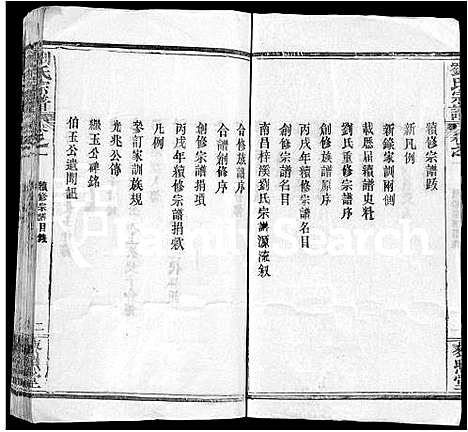 劉氏宗譜
續修宗譜跋
新凡例
新錄家訓兩則
載歷屆續譜史料
劉氏重修宗譜序
創修族譜原序
創修宗譜名目
南昌梓溪劉氏宗譜源流叙
丙戌年續修宗譜名目
創修宗譜捐項
丙戌年續修宗譜捐欵
合譜創修序
合修族譜序
凡例
參訂家訓族規
光兆公傳
繼玉公碑銘
伯玉公遺聞記
續修宗譜目錄
二
劉氏宗譜
FamilySearch